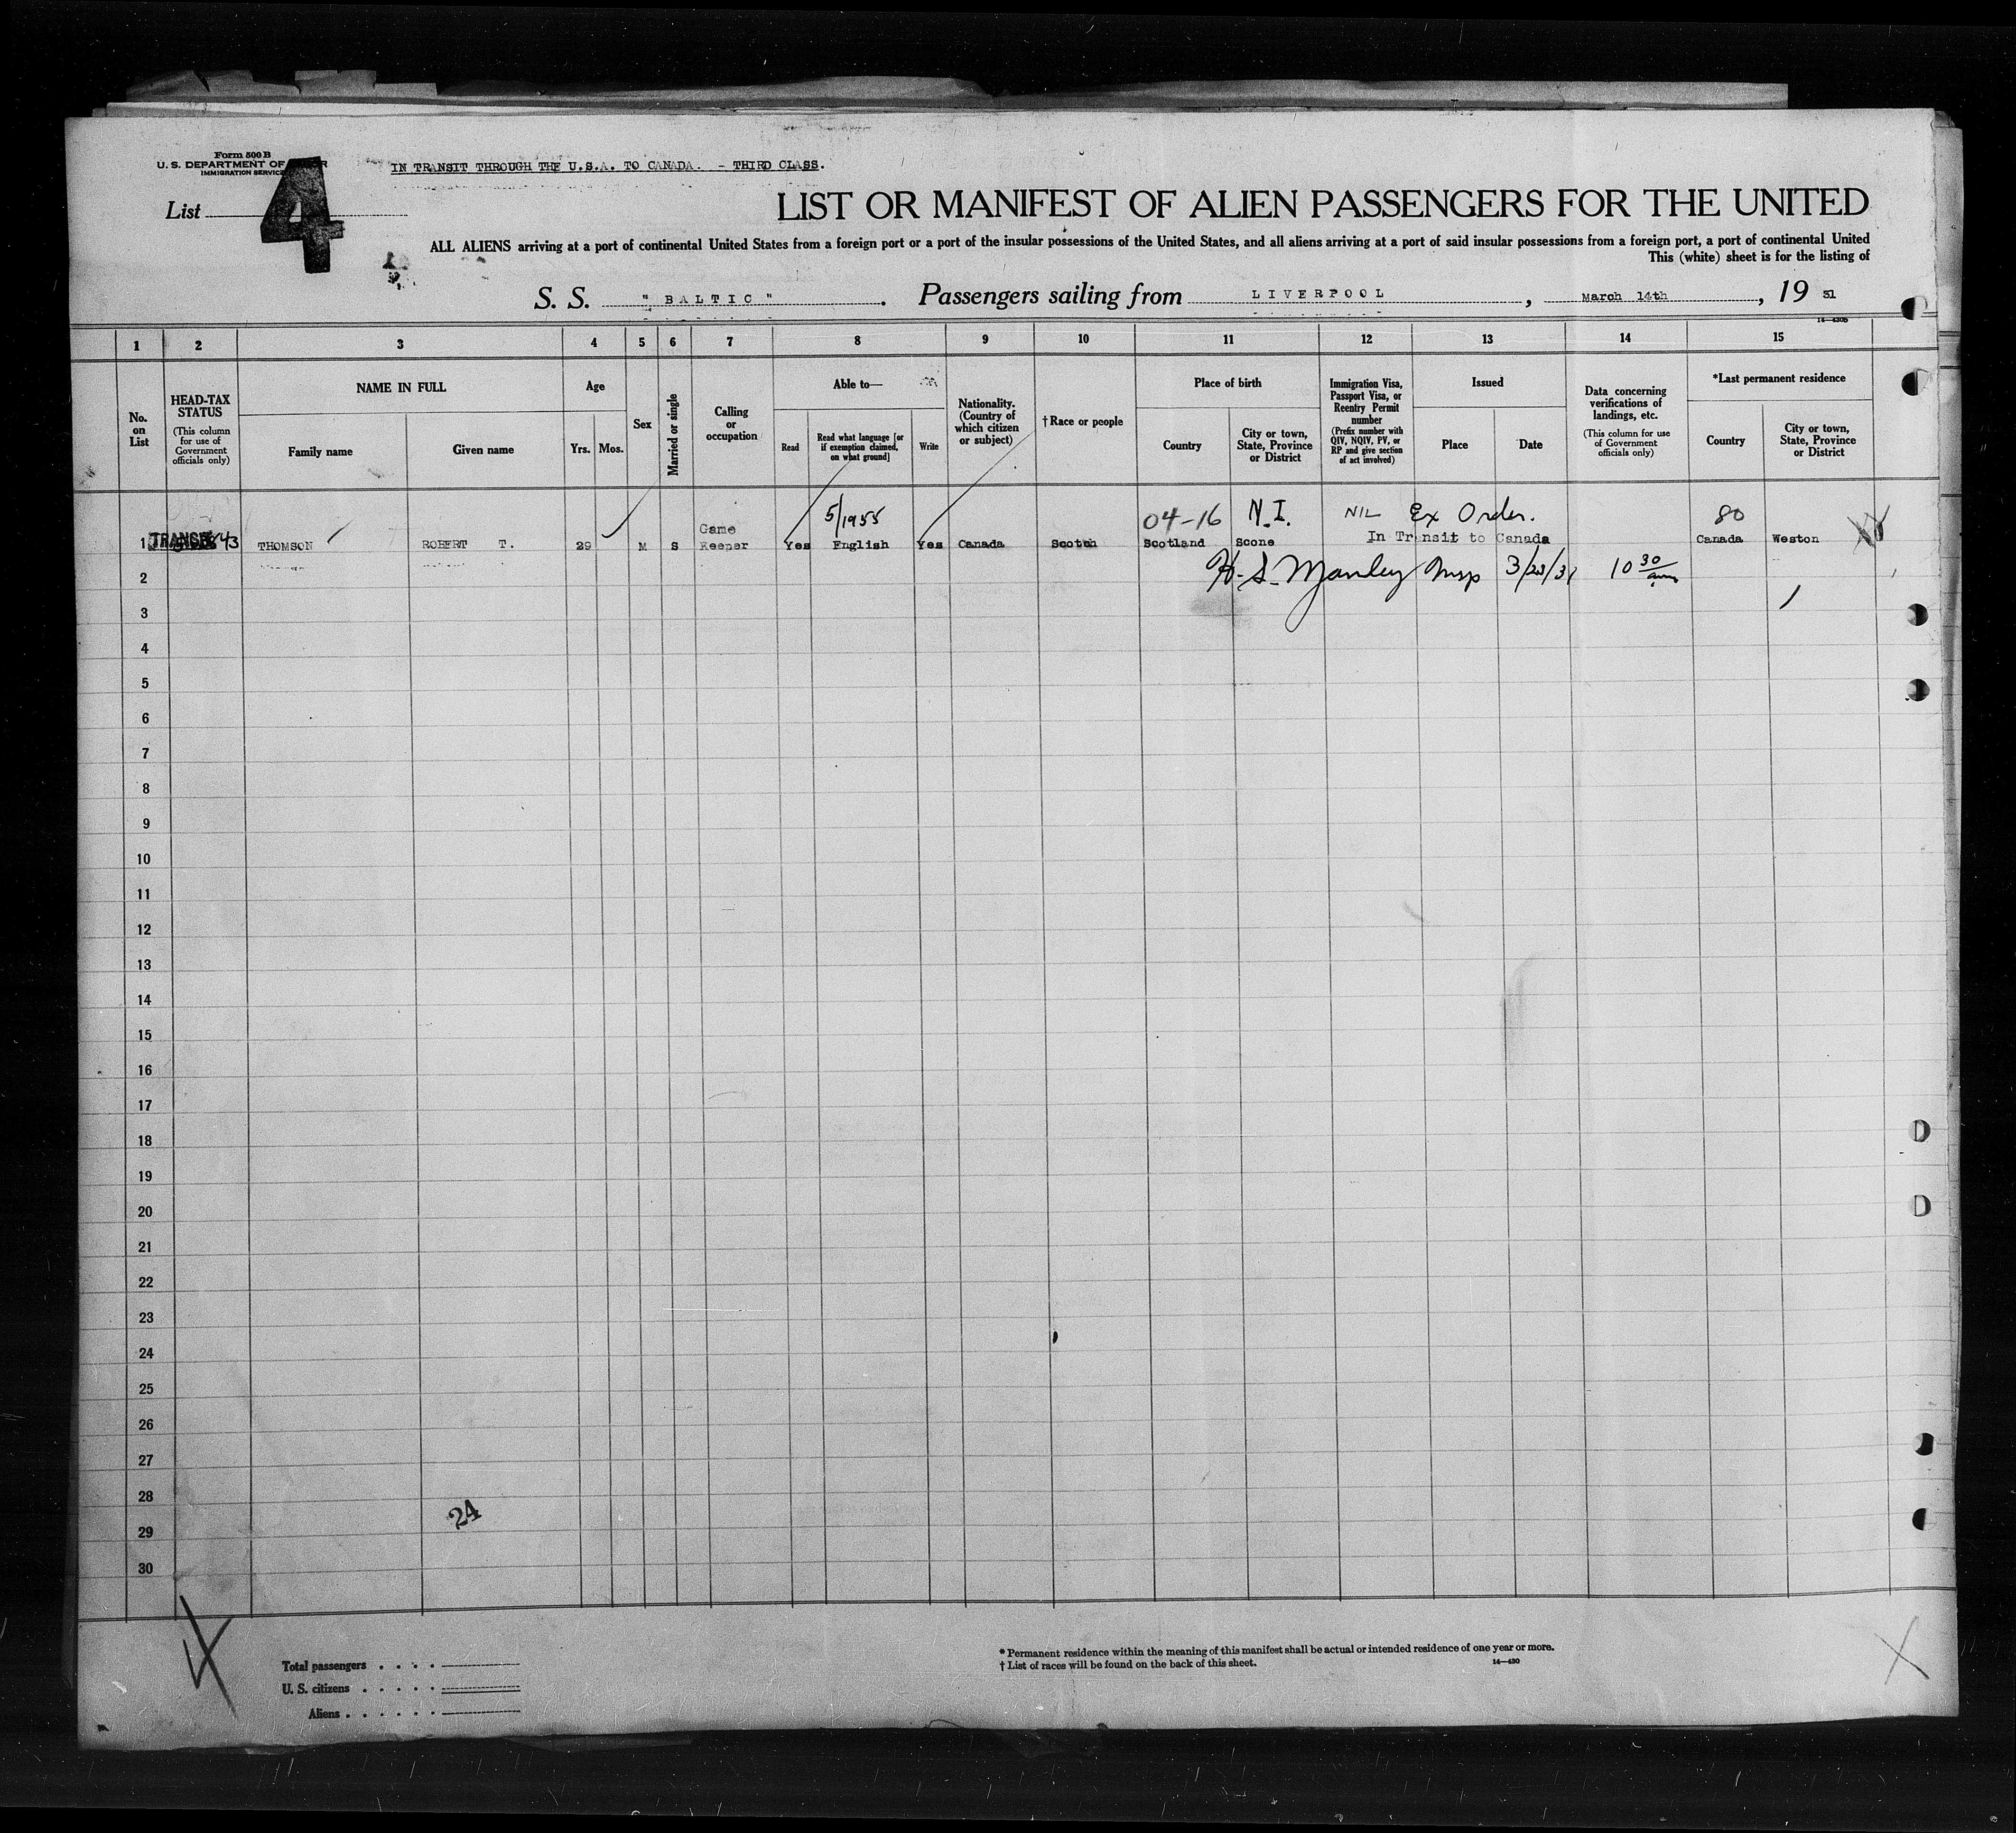 Form 500 B
U. S. DEPARTMENT OF
IMMIGRATION SERVICE
IN TRANSIT THROUGH THE U.S.A. TO CANADA. - THIRD CLASS.
List
4
LIST OR MANIFEST OF ALIEN PASSENGERS FOR THE UNITED
ALL ALIENS arriving at a port of continental United States from a foreign port or a port of the insular possessions of the United States, and all aliens arriving at a port of said insular possessions from a foreign port, a port of continental United
This (white) sheet is for the listing of
S. S. " BALTIC " . Passengers sailing from LIVERPOOL , March 14th , 19 31
14—430B
1 2 3 4 5 6 7 8 9 10 11 12 13 14 15
No. on List
HEAD-TAX STATUS
(This column for use of Government officials only)
NAME IN FULL
Family name
Given name
Age
Yrs.
Mos.
Sex
Married or single
Calling or occupation
Able to—
Read
Read what language [or if exemption claimed, on what ground]
Write
Nationality. (Country of which citizen or subject)
†Race or people
Place of birth
Country
City or town, State, Province or District
Immigration Visa, Passport Visa, or Reentry Permit number
(Prefix number with QIV, NQIV, PV, or RP and give section of act involved)
Issued
Place
Date
Data concerning verifications of landings, etc.
(This column for use of Government officials only)
*Last permanent residence
Country
City or town, State, Province or District
5/1955 04-16 N.I. NIL Ex Order. 80
1 THOMSON ROBERT T. 29 M S Game Keeper Yes English Yes Canada Scotch Scotland Scone In Transit to Canada Canada Weston
2 H. S. Manley Insp 3/23/31 10 30 am
3
4
5
6
7
8
9
10
11
12
13
14
15
16
17
18
19
20
21
22
23
24
25
26
27
28
24
29
30
Total passengers . . . .
U. S. citizens . . . . .
Aliens . . . . . .
* Permanent residence within the meaning of this manifest shall be actual or intended residence of one year or more.
† List of races will be found on the back of this sheet.
14—430